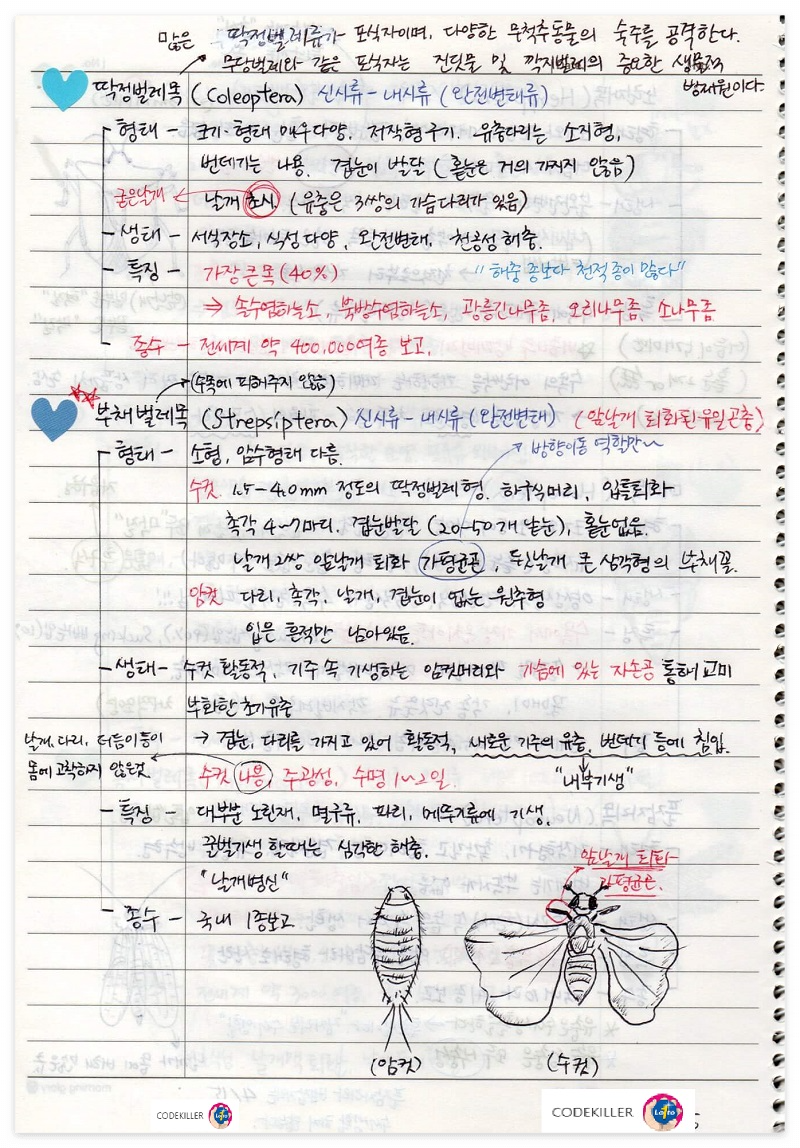 많은 딱정벌레류가 포식자이며, 다양한 무척추동물의 숙주를 공격한다.
무당벌레와 같은 포식자는 진딧물 및 깍지벌레의 중요한 생물적
방제원이다.
딱정벌레목 (Coleoptera) 신시류 - 내시류 (완전변태류)
형태 - 크기·형태 매우다양. 저작형구기. 유충다리는 소지형,
번데기는 나용. 겹눈이 발달 (홑눈은 거의 가지지 않음)
굳은날개 ← 날개 초시. (유충은 3쌍의 가슴다리가 있음)
생태 - 서식장소, 식성 다양, 완전변태, 천공성 해충.
특징 - 가장 큰 목 (40%) "해충 종보다 천적 종이 많다"
→ 솔수염하늘소, 북방수염하늘소, 광릉긴나무좀, 오리나무좀, 소나무좀
종수 - 전세계 약 400,000여종 보고.
(수목에 피해주지 않음)
부채벌레목 (Strepsiptera) 신시류 - 내시류 (완전변태) (앞날개 퇴화된 유일곤충)
형태 - 소형, 암수형태 다름. 방향이동 역할만~
수컷 1.5-4.0mm 정도의 딱정벌레형. 하구식머리, 입틀퇴화
촉각 4~7마디, 겹눈발달 (20-50개 낱눈), 홑눈없음.
날개 2쌍 앞날개 퇴화 가평균곤, 뒷날개 큰 삼각형의 부채꼴.
암컷 다리, 촉각, 날개, 겹눈이 없는 원추형
입은 흔적만 남아있음.
생태 - 수컷 활동적, 기주 속 기생하는 암컷머리와 가슴에 있는 자손공 통해 교미
부화한 초기유충
→ 겹눈, 다리를 가지고 있어 활동적, 새로운 기주의 유충, 번데기 등에 침입.
날개, 다리, 더듬이 등이
몸에 고착하지 않은것
수컷 나용, 주광성, 수명 1~2일. "내부기생"
특징 대부분 노린재, 멸구류, 파리, 메뚜기류에 기생.
꿀벌기생 할때는 심각한 해충.
"날개병신"
종수 - 국내 1종보고
앞날개 퇴화-
가평균곤.
(암컷) (수컷)
CODEKILLER Lotto
CODEKILLER Lotto